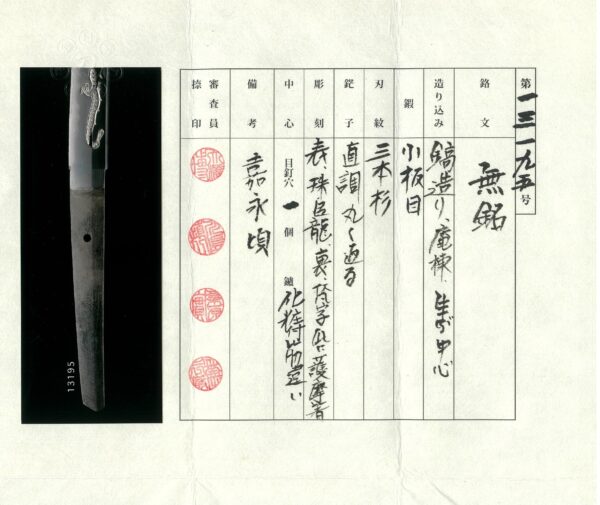 第一三一九五号
銘文 無銘
造り込み 鎬造り、庵棟、生ぶ中心
鍛 小板目
刃紋 三本杉
鋩子 直調 丸く返る
彫刻 表、珠追龍、裏、梵字 護摩箸
中心 目釘穴 一 個 鑢 化粧筋違い
備考 嘉永頃
審査員捺印
13195